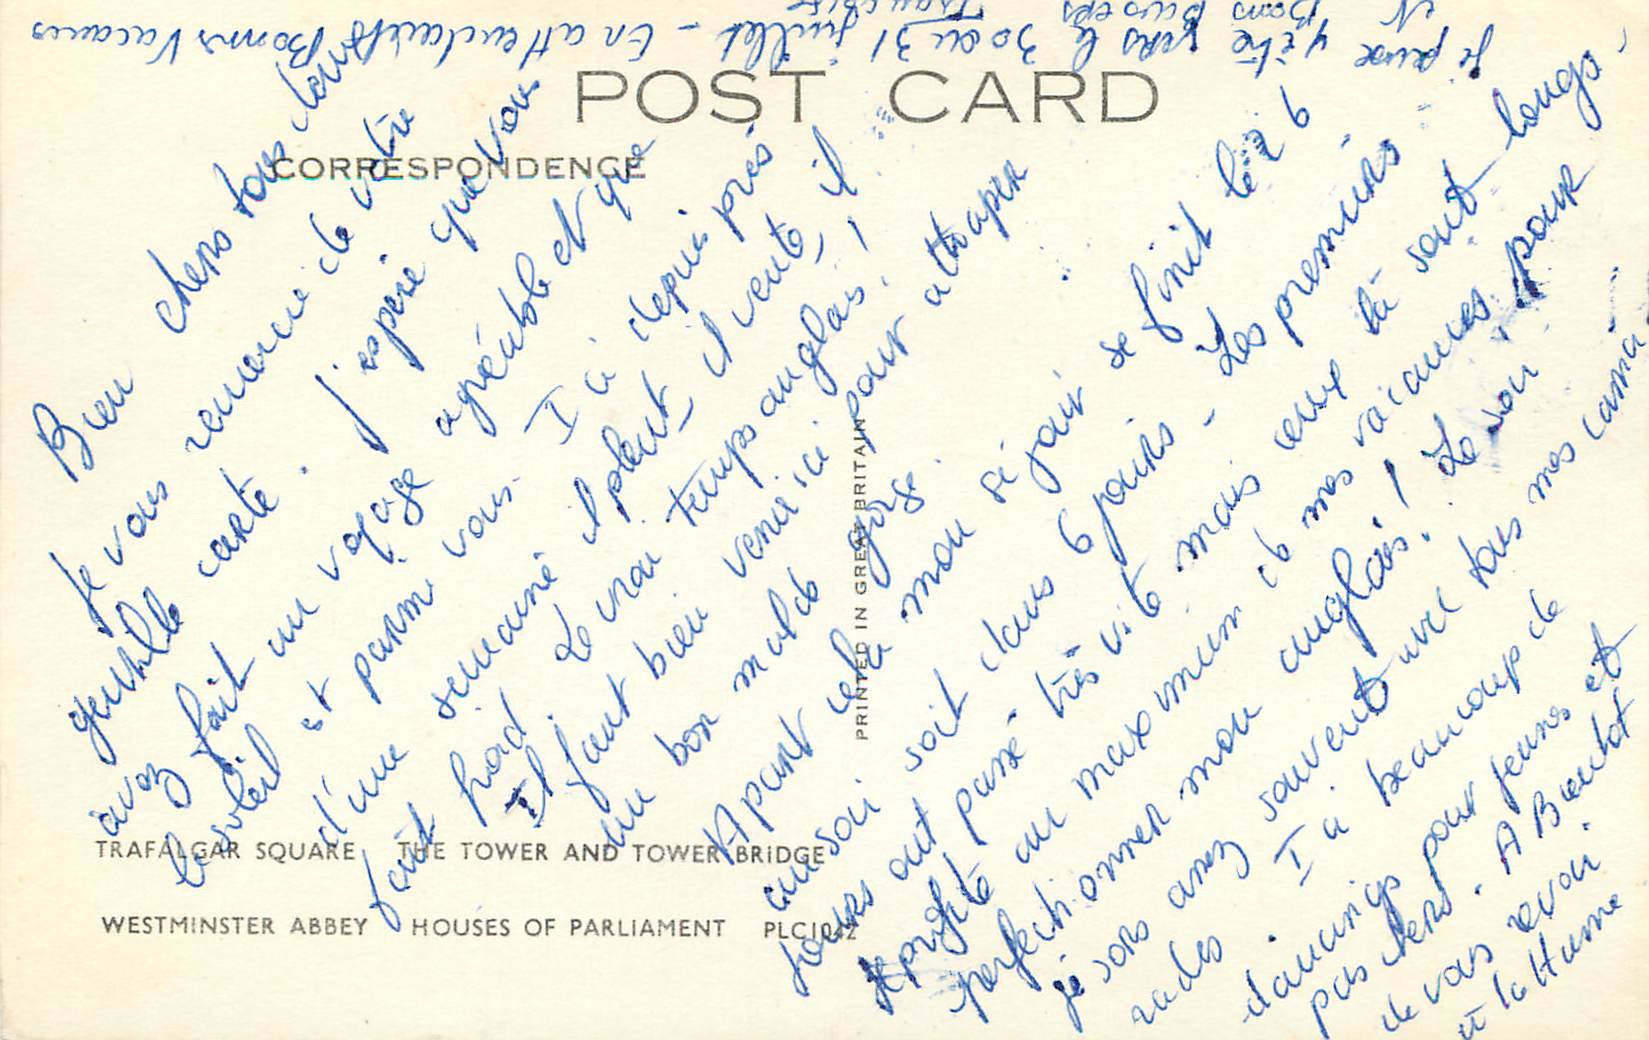 POST CARD
CORRESPONDENCE
Bien chers tous tous
Je vous remercie de votre
gentille carte. J'espère que vous
avez fait un voyage agréable et que
le soleil est parmi vous. Ici depuis près
d'une semaine il pleut, il vente, il
fait froid. Le vrai temps anglais!
Il faut bien venir ici pour attraper
un bon mal de gorge.
Apart cela mon séjour se finit le 26
au soir soit dans 6 jours - Les premiers
jours ont passé très vite mais ceux là sont longs.
Je profite au maximum de mes vacances pour
perfectionner mon anglais! Le soir
je sors assez souvent avec tous mes cama
rades. Ici beaucoup de
dancings pour jeunes et
pas chers. A Bientôt
de vous revoir
à la Hume
Je pense y être vers le 30 ou 31 juillet - En attendant Bonnes Vacances
et Bons Baisers
Françoise
TRAFALGAR SQUARE THE TOWER AND TOWER BRIDGE
WESTMINSTER ABBEY HOUSES OF PARLIAMENT PLC1042
PRINTED IN GREAT BRITAIN